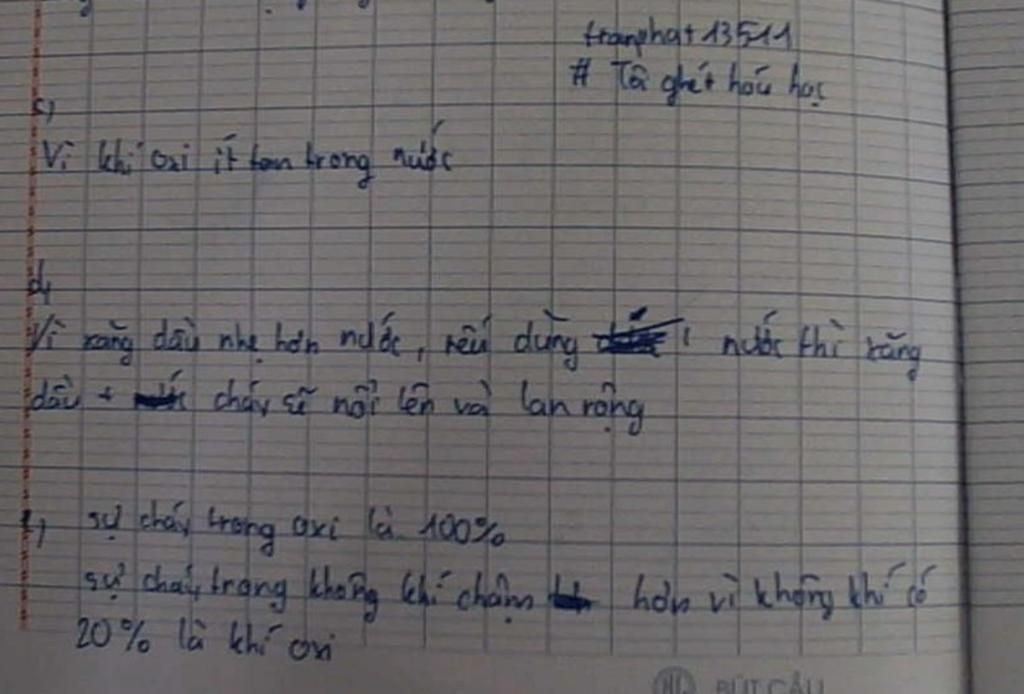 tranphat13511
# Tôi ghét hóa học
c)
Vì khí oxi ít tan trong nước
d,
Vì xăng dầu nhẹ hơn nước, nếu dùng nước thì xăng
dầu + cháy sẽ nổi lên và lan rộng
f, sự cháy trong oxi là 100%
sự cháy trong không khí chậm hơn vì không khí có
20% là khí oxi
BÚT CẦU